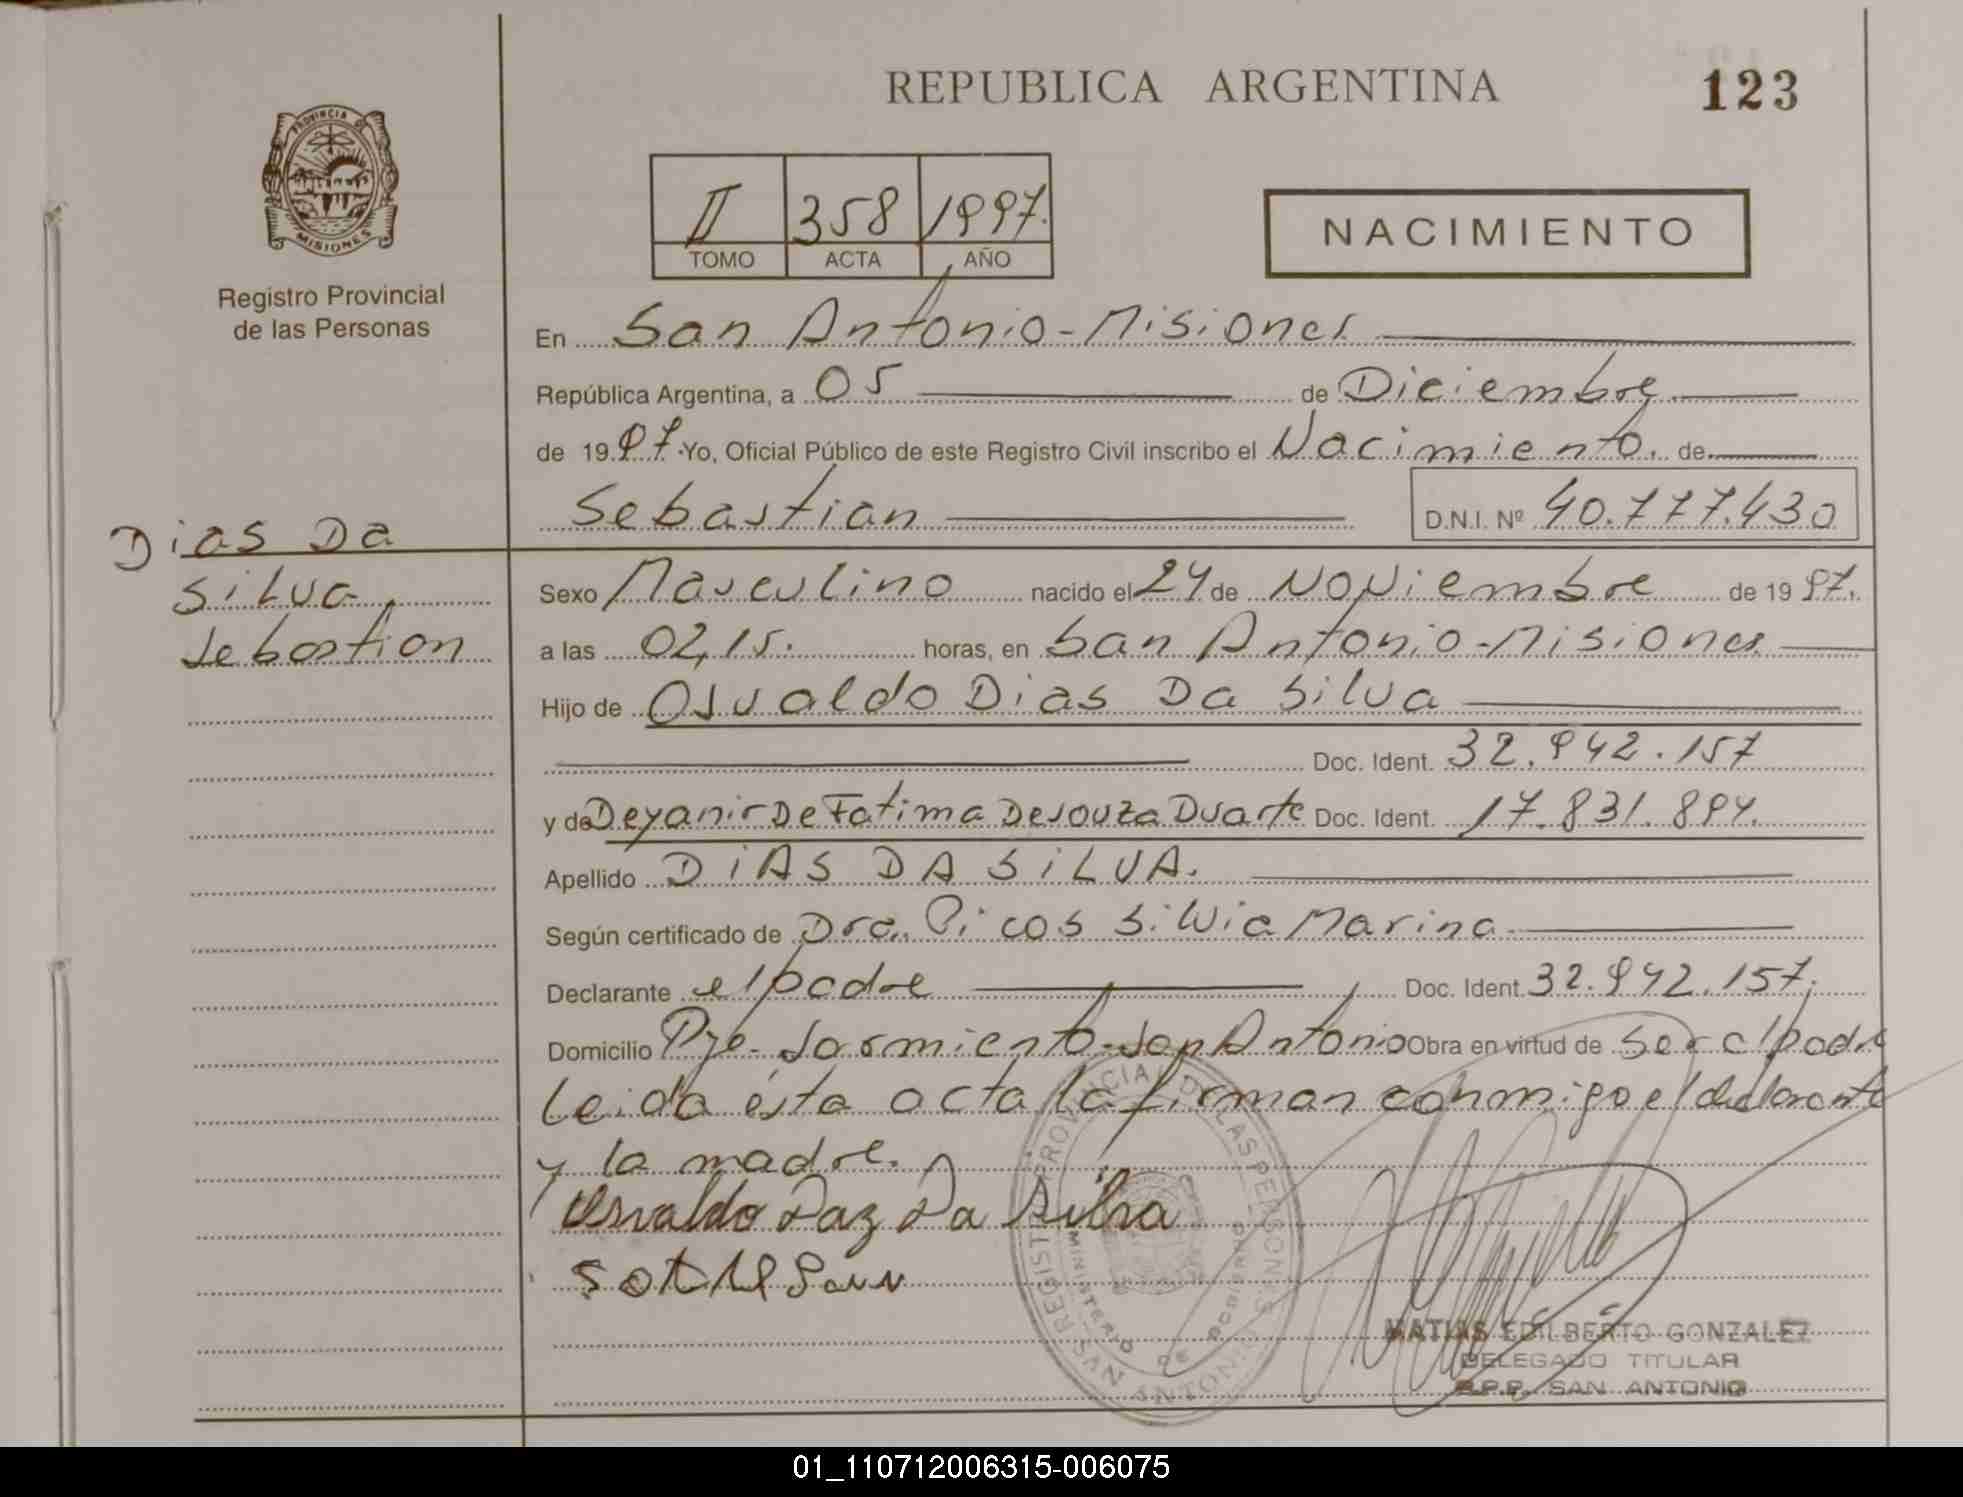 REPUBLICA ARGENTINA
123
PROVINCIA DE
MISIONES
Registro Provincial
de las Personas
II 358 1997.
TOMO ACTA AÑO
NACIMIENTO
En San Antonio-Misiones
República Argentina, a 05 de Diciembre
de 1997. Yo, Oficial Público de este Registro Civil inscribo el Nacimiento. de
Sebastian D.N.I. Nº 40.777.430
Dias Da
Silva
Sebastian
Sexo Masculino nacido el 24 de Noviembre de 1997.
a las 02,15. horas, en San Antonio-Misiones
Hijo de Osvaldo Dias Da Silva
Doc. Ident. 32.942.157
y de Deyanir De Fatima Desouza Duarte Doc. Ident. 17.831.894.
Apellido DIAS DA SILVA.
Según certificado de Dra. Picos Silvia Marina
Declarante el padre Doc. Ident. 32.942.157.
Domicilio Pje. Sarmiento-San Antonio Obra en virtud de ser el padre
Leida ésta acta la firman conmigo el declarante
y la madre.
Osvaldo Daz Da Silva
REGISTRO PROVINCIAL DE LAS PERSONAS
MINISTERIO DE GOBIERNO
SAN ANTONIO
MATIAS EDILBERTO GONZALEZ
DELEGADO TITULAR
R.P.P. SAN ANTONIO
01_110712006315-006075